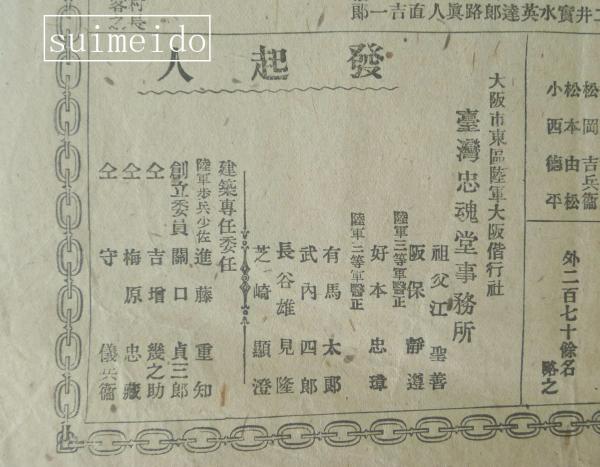 suimeido
二井實水英達郎路眞人直吉一郎
松岡吉兵衞
松本由松
小西德平
外二百七十餘名
略之
發起人
大阪市東區陸軍大阪偕行社
臺灣忠魂堂事務所
祖父江聖善
陸軍三等軍醫正
阪保靜遵
陸軍三等軍醫正
好本忠璋
有馬太郞
武內四郎
長谷雄見隆
芝崎顯澄
建築專任委任
陸軍步兵少佐
進藤重知
創立委員
關口貞三郎
仝
吉增幾之助
仝
梅原忠藏
仝
守儀兵衞